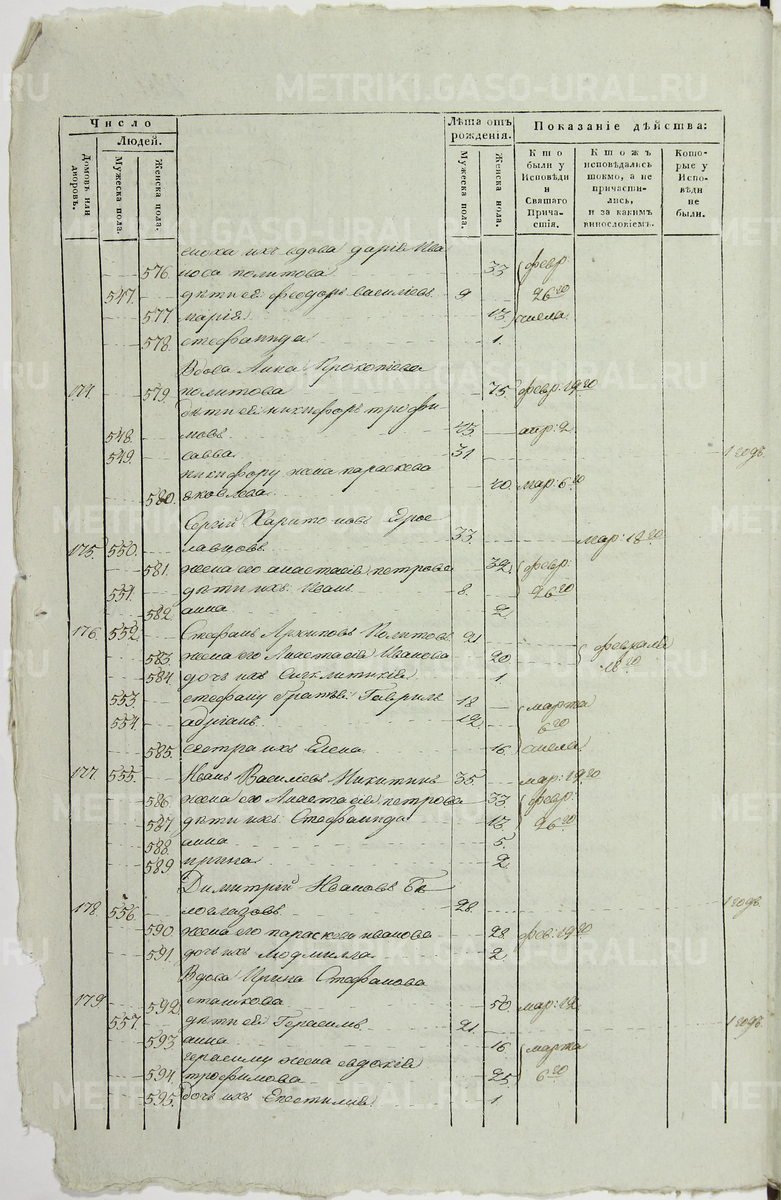 METRIKI.GASO-URAL.RU
Число
Людей.
Домовъ или дворовъ.
Мужеска пола.
Женска пола.
Лѣта отъ рожденія.
Мужеска пола.
Женска пола.
Показаніе дѣйства:
Кто были у Исповѣди и Святаго Причастія.
Кто жъ исповѣдались токмо, а не причастились, и за какимъ винословіемъ.
Которые у Исповѣди не были.
сноха ихъ вдова дарія Ива
576. нова политова 33 февр:
547. дѣти ея феодоръ васильевъ 9 26го
577 марія 13 числа
578. стефанида 1.
Вдова Анна Прокопіева
174 579. политова 75 февр: 19го
дѣти ея никифоръ трофи
548. мовъ 43. апр: 2
549. савва 31 1 годъ
никифору жена параскева
580. яковлева 40 мар: 6го
Сергій Харитоновъ Ярос
175 550. лавцовъ 33 мар: 18го
581. жена его анастасія петрова 32. февр:
551. дѣти ихъ Иванъ 8. 26го
582. анна 2
176 552 Стефанъ Архиповъ Политовъ 21
583. жена его Анастасія Иванова 20
584 дочь ихъ Синклитикія 1 18го
553. стефану братья Гавриилъ 18 марта
554 адріанъ 12. 6го
585. сестра ихъ Елена 16. числа
177 555. Иванъ Васильевъ Никитинъ 35. мар: 19го
586. жена его Анастасія петрова 33 февр:
587. дѣти ихъ Стефанида 13 26го
588 анна 5.
589 ирина 2
Димитрій Ивановъ Бѣ
178. 556. логлазовъ 28. 1 годъ
590 жена его параскева иванова 28 фев: 19го
591. дочь ихъ людмилла 2
Вдова Ирина Стефанова
179 592. сташкова 50 мар: 12
557. дѣти ея Герасимъ 21. 1 годъ
593 анна 16 марта
герасиму жена евдокія
594. трофимова 25 6го
595. дочь ихъ 1